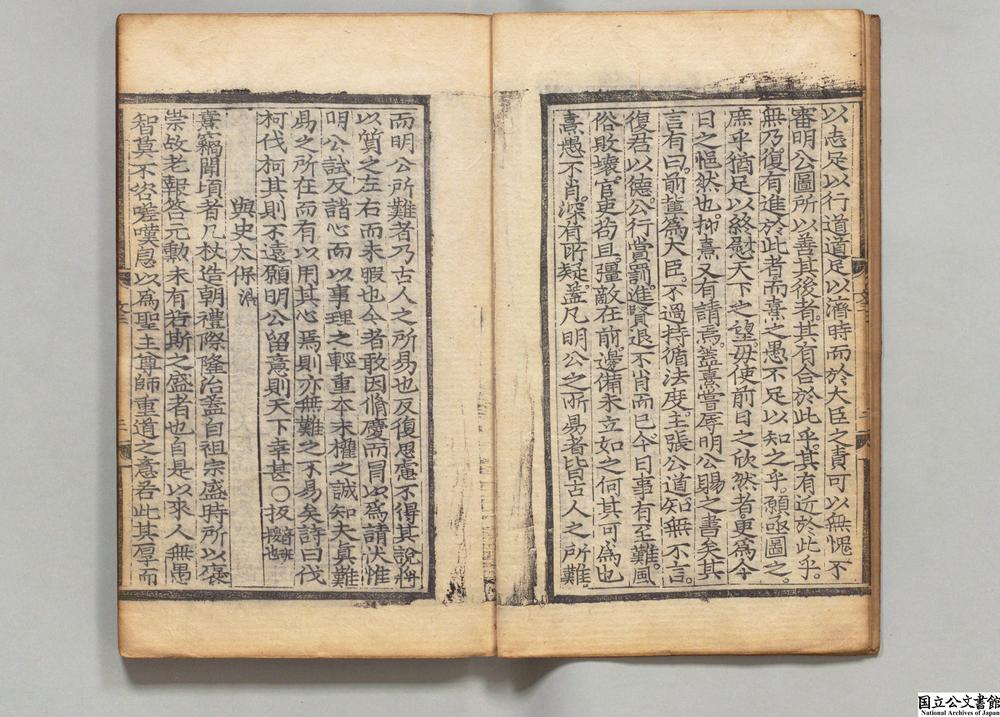 以志足以行道道足以濟時而於大臣之責可以無愧不
審明公圖所以善其後者其有合於此乎其有近於此乎
無乃復有進於此者而熹之愚不足以知之乎願亟圖之
庶乎猶足以終慰天下之望毋使前日之欣然者更爲今
日之悒然也抑熹又有請焉蓋熹嘗辱明公賜之書矣其
言有曰前輩爲大臣不過持循法度主張公道知無不言
復君以德公行賞罰進賢退不肖而已今日事有至難風
俗敗壞官吏苟且彊敵在前邊備未立如之何其可爲也
熹愚不肖深有所疑蓋凡明公之所易者皆古人之所難
而明公所難者乃古人之所易也反復思慮不得其說將
以質之左右而未暇也今者敢因脩慶而冒以爲請伏惟
明公試反諸心而以事理之輕重本末權之誠知夫真難
易之所在而有以用其心焉則亦無難之不易矣詩曰伐
柯伐柯其則不遠願明公留意則天下幸甚〇扳
與史太保浩
熹竊聞頃者几杖造朝禮際隆洽蓋自祖宗盛時所以褒
崇故老報答元勳未有若斯之盛者也自是以來人無愚
智莫不咨嗟嘆息以爲聖主尊師重道之意若此其厚而
国立公文書館
National Archives of Japan